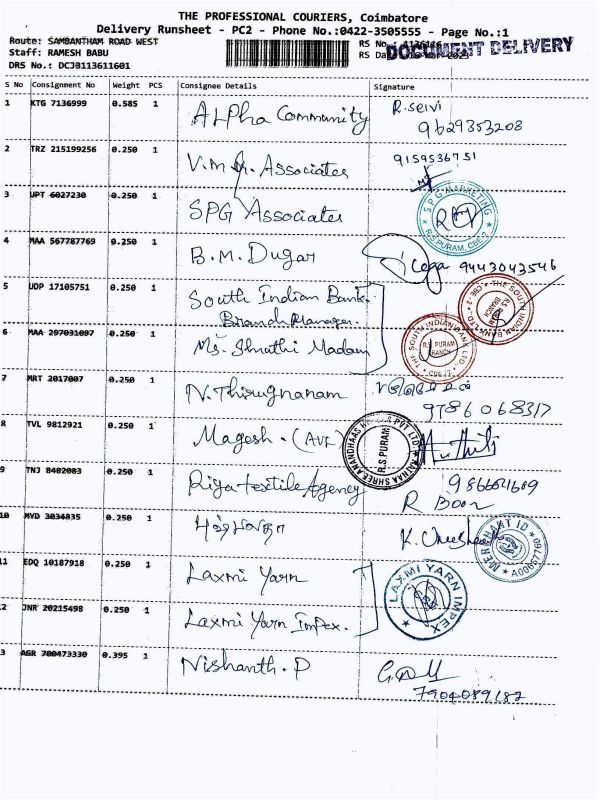 THE PROFESSIONAL COURIERS, Coimbatore
Delivery Runsheet - PC2 - Phone No.:0422-3505555 - Page No.:1
Route: SAMBANTHAM ROAD WEST
RS No.:
DOCUMENT DELIVERY
Staff: RAMESH BABU
DRS No.: DCJB113611601
S No Consignment No Weight PCS Consignee Details Signature
1 KTG 7136999 0.585 1 ALPha Community R.selvi
9629353203
2 TRZ 215199256 0.250 1 Associates 9159536751
3 UPT 6027230 0.250 1 SPG Associates
SPG MARKETING R.S PURAM, CBE-2
4 MAA 567787769 0.250 1 B.M. Dugar 9443043546
5 UDP 17105751 0.250 1 South Indian Bank
Branch Manager
THE SOUTH INDIAN BANK
6 MAA 297031097 0.250 1 Ms. Shruthi Madam
THE SOUTH INDIAN BANK LTD. R.S. PURAM BRANCH
7 MRT 2017007 0.250 1 N. Thirugnanam
9786068317
8 TVL 9812921 0.250 1 Magesh. (AVF)
R.S PURAM
9 TNJ 8482083 0.250 1 Riya textile Agency
10 MYD 3034835 0.250 1
MERCHANT ID
11 EDQ 10187918 0.250 1 Laxmi Yarn
LAXMI YARN IMPEX
2 JNR 20215498 0.250 1 Laxmi Yarn Impex.
3 AGR 700473330 0.395 1 Nishanth. P
7904089182